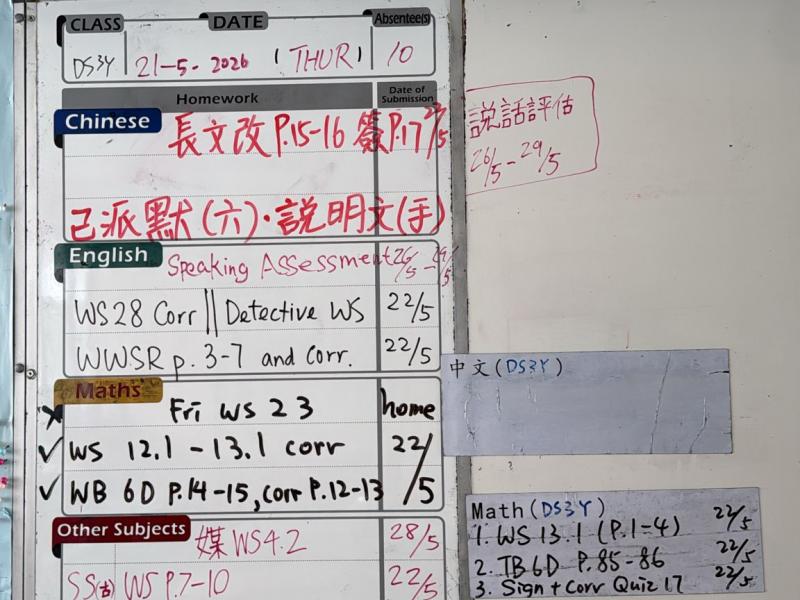 CLASS DATE Absentee(s)
DS3Y 21-5-2026 (THUR) 10
Homework Date of Submission
Chinese
長文改 P.15-16 簽 P.17 22/5
已派默(六)·說明文(手)
English
Speaking Assessment 26/5 - 29/5
WS28 Corr || Detective WS 22/5
WWSR p. 3-7 and Corr. 22/5
Maths
Fri WS 23 home
✓ WS 12.1 - 13.1 corr 22/5
✓ WB 6D P.14-15, corr P.12-13
Other Subjects
媒 WS4.2 28/5
SS(古) WS P.7-10 22/5
說話評估
26/5 - 29/5
中文(DS3Y)
Math (DS3Y)
1. WS 13.1 (P.1-4) 22/5
2. TB 6D P.85-86 22/5
3. Sign + Corr Quiz 17 22/5